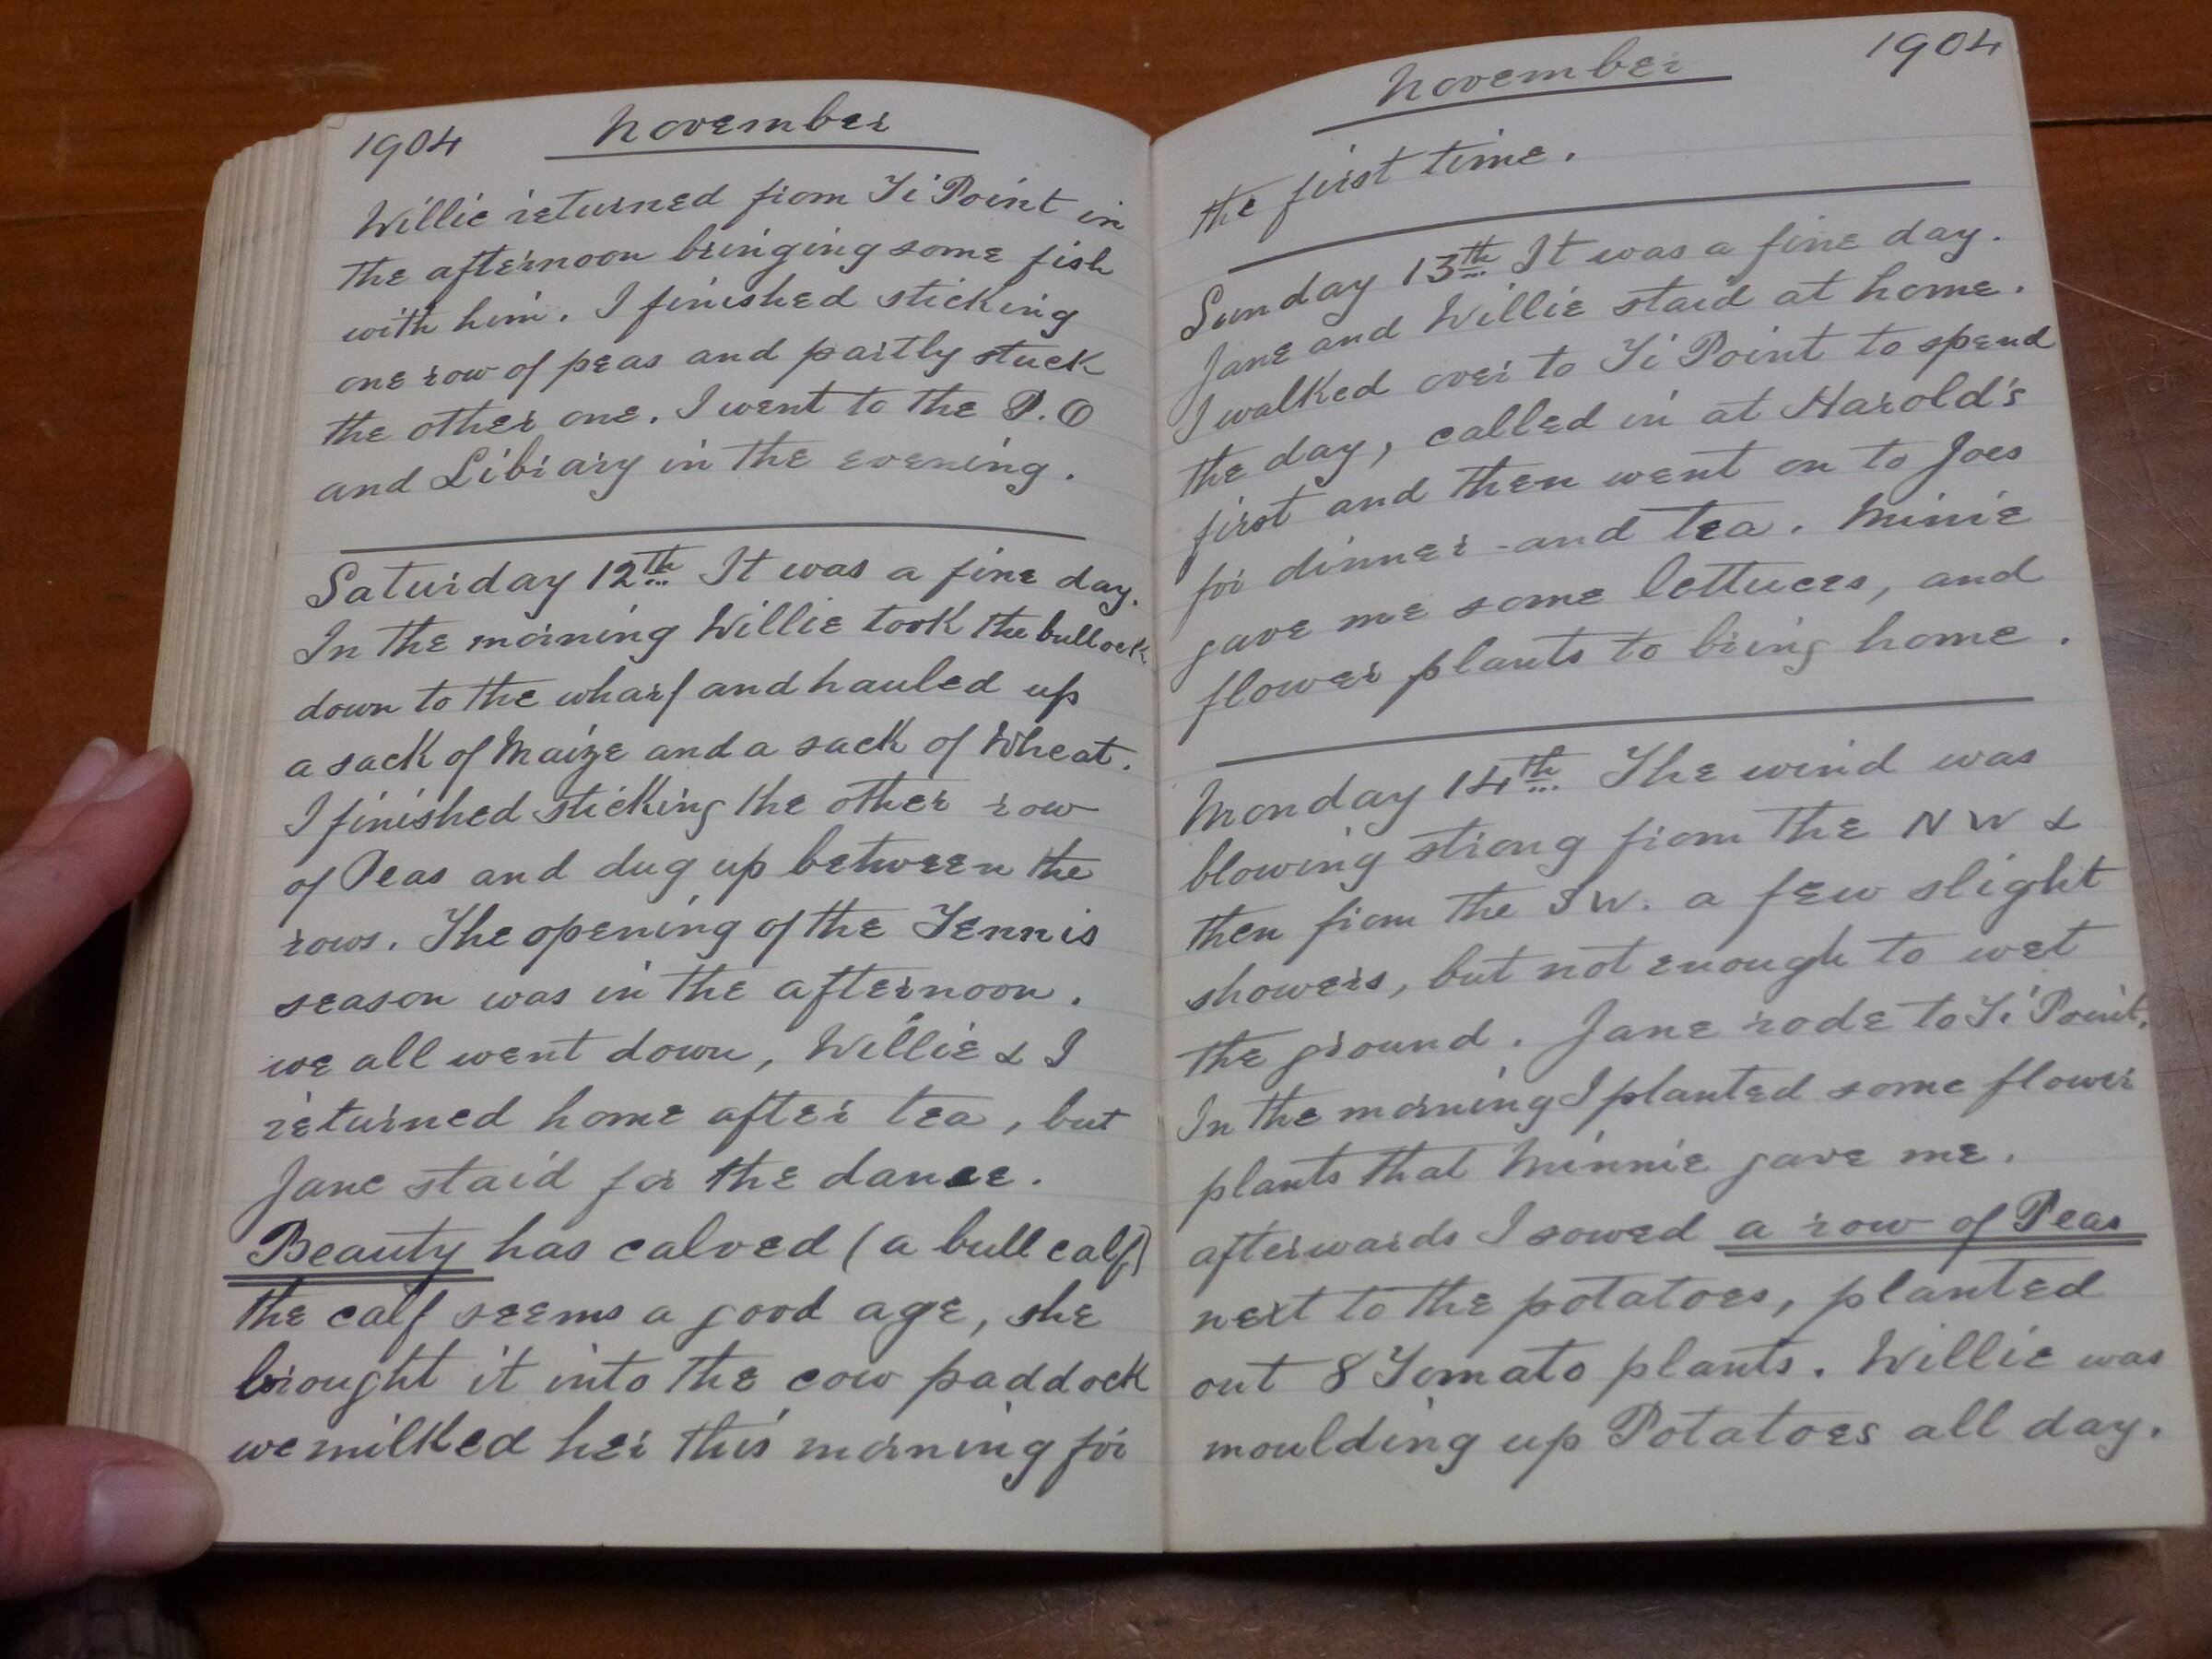 1904 November
Willie returned from Ti Point in
the afternoon bringing some fish
with him. I finished sticking
one row of peas and partly stuck
the other one. I went to the P.O
and Library in the evening.
Saturday 12th It was a fine day.
In the morning Willie took the bullock
down to the wharf and hauled up
a sack of Maize and a sack of Wheat.
I finished sticking the other row
of Peas and dug up between the
rows. The opening of the Tennis
season was in the afternoon.
we all went down, Willie & I
returned home after tea, but
Jane staid for the dance.
Beauty has calved (a bull calf)
the calf seems a good age, she
brought it into the cow paddock
we milked her this morning for
November 1904
the first time.
Sunday 13th It was a fine day.
Jane and Willie staid at home.
I walked over to Ti Point to spend
the day, called in at Harold's
first and then went on to Joes
for dinner and tea. Minie
gave me some lettuces, and
flower plants to bring home.
Monday 14th The wind was
blowing strong from the NW &
then from the SW. a few slight
showers, but not enough to wet
the ground. Jane rode to Ti Point.
In the morning I planted some flower
plants that Minnie gave me.
afterwards I sowed a row of Peas
next to the potatoes, planted
out 8 Tomato plants. Willie was
moulding up Potatoes all day.